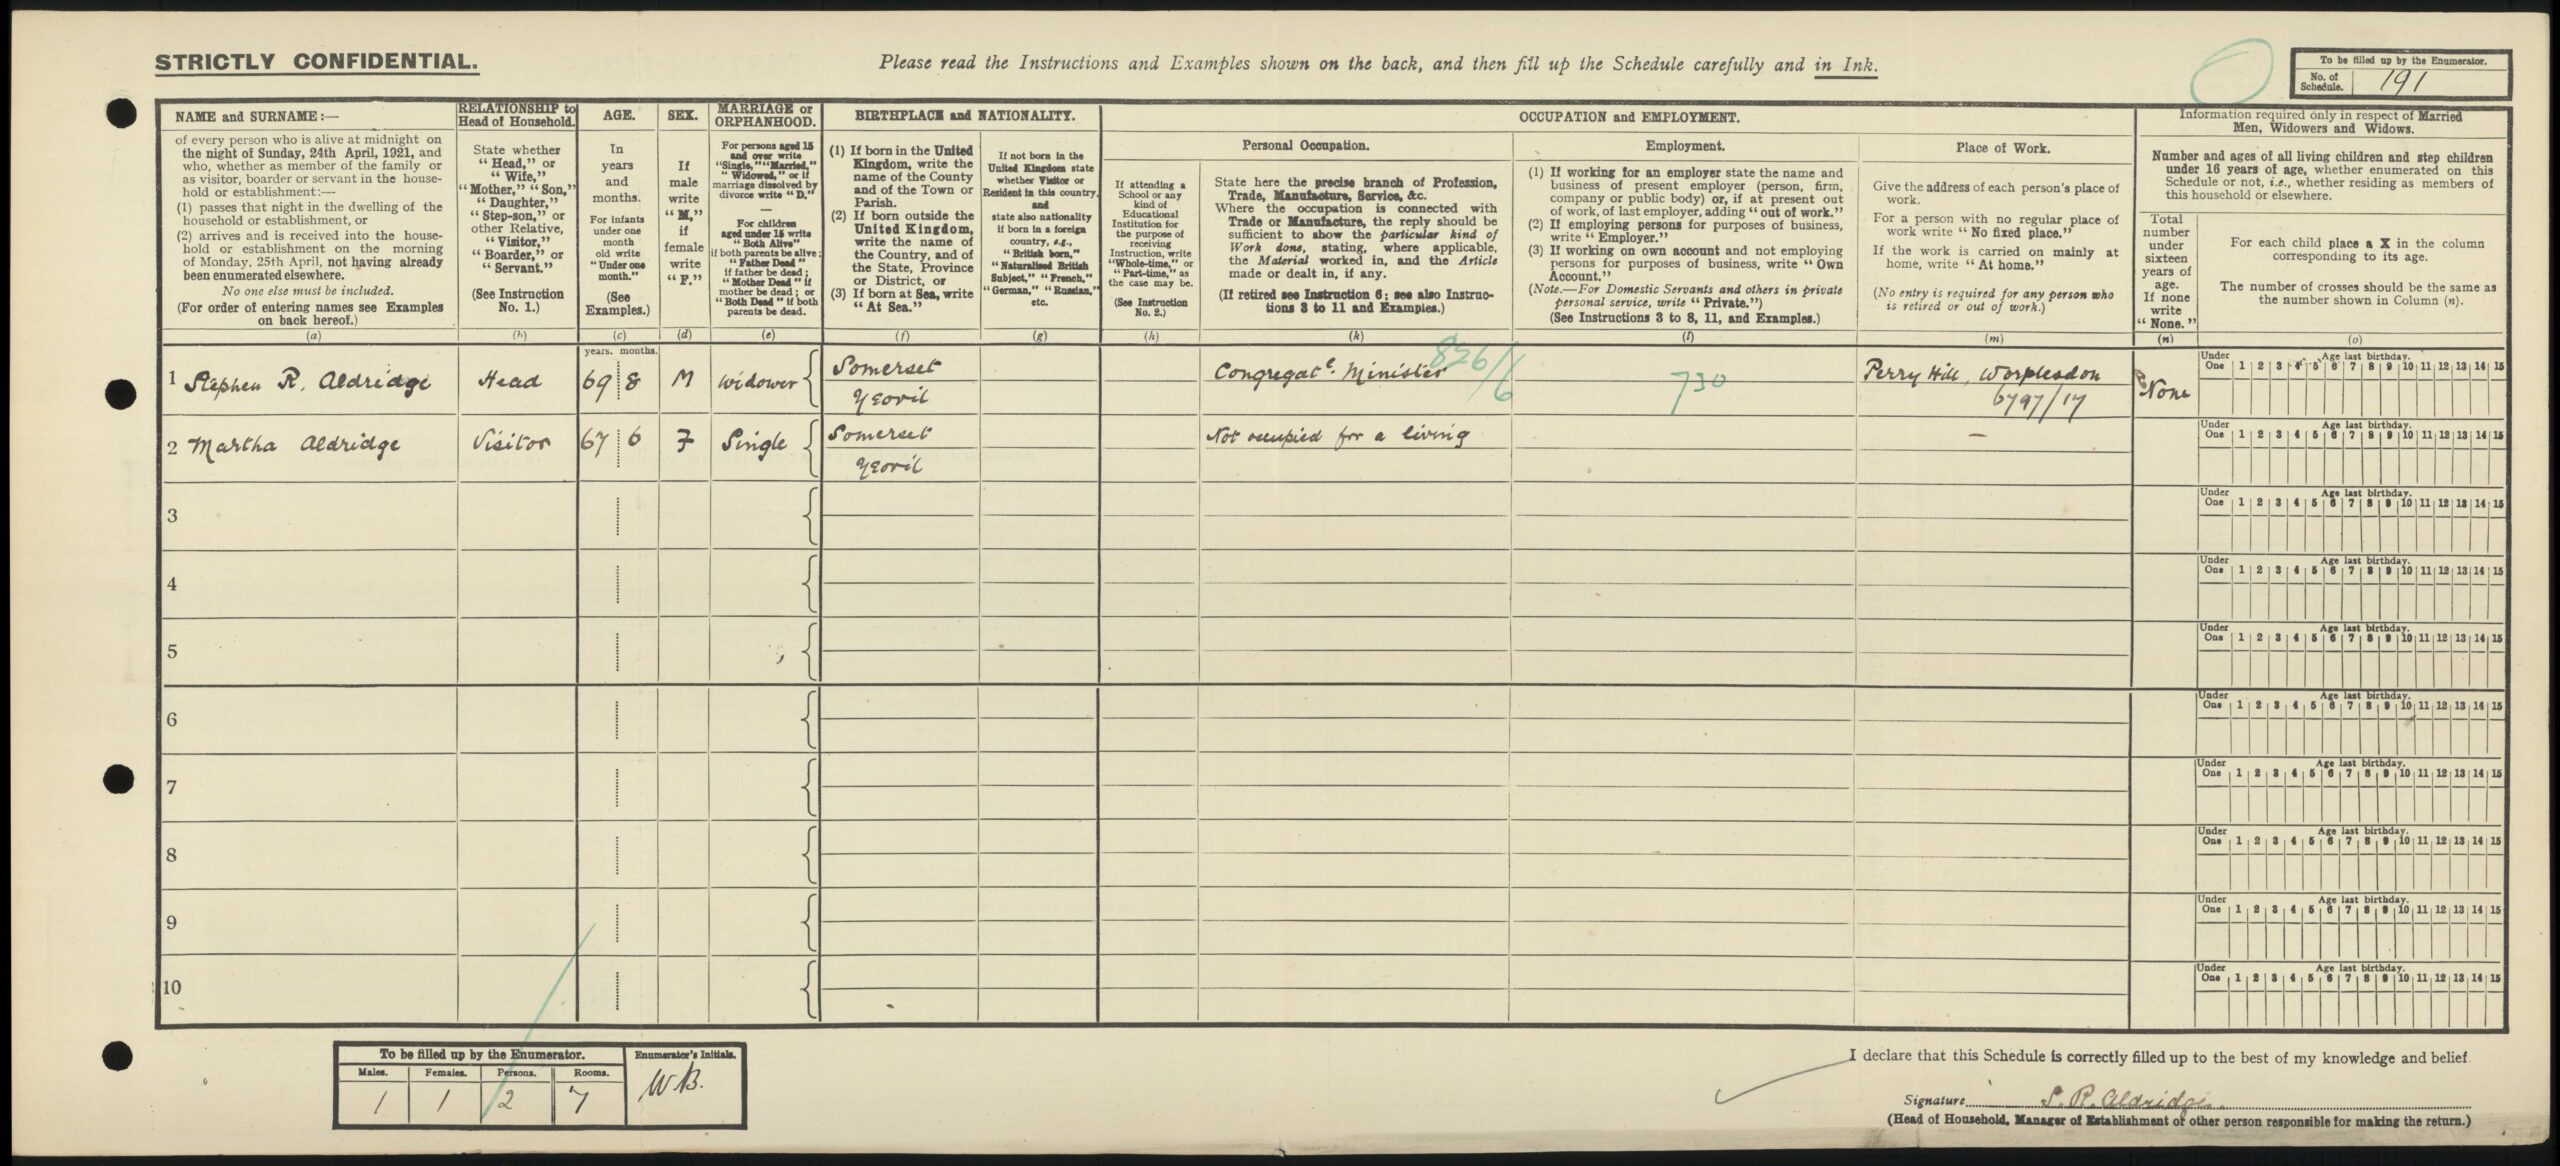 STRICTLY CONFIDENTIAL.
Please read the Instructions and Examples shown on the back, and then fill up the Schedule carefully and in Ink.
To be filled up by the Enumerator.
No. of Schedule. 191
NAME and SURNAME:—
of every person who is alive at midnight on
the night of Sunday, 24th April, 1921, and
who, whether as member of the family or
as visitor, boarder or servant in the house-
hold or establishment:—
(1) passes that night in the dwelling of the
household or establishment, or
(2) arrives and is received into the house-
hold or establishment on the morning
of Monday, 25th April, not having already
been enumerated elsewhere.
No one else must be included.
(For order of entering names see Examples
on back hereof.)
(a)
RELATIONSHIP to
Head of Household.
State whether
"Head," or
"Wife,"
"Mother," "Son,"
"Daughter,"
"Step-son," or
other Relative,
"Visitor,"
"Boarder," or
"Servant."
(See Instruction
No. 1.)
(b)
AGE.
In
years
and
months.
For infants
under one
month
old write
"Under one
month."
(See
Examples.)
(c)
SEX.
If
male
write
"M,"
if
female
write
"F."
(d)
MARRIAGE or
ORPHANHOOD.
For persons aged 15
and over write
"Single," "Married,"
"Widowed," or if
marriage dissolved by
divorce write "D."
—
For children
aged under 15 write
"Both Alive"
if both parents be alive;
"Father Dead"
if father be dead;
"Mother Dead" if
mother be dead; or
"Both Dead" if both
parents be dead.
(e)
BIRTHPLACE and NATIONALITY.
(1) If born in the United
Kingdom, write the
name of the County
and of the Town or
Parish.
(2) If born outside the
United Kingdom,
write the name of
the Country, and of
the State, Province
or District, or
(3) If born at Sea, write
"At Sea."
(f)
If not born in the
United Kingdom state
whether Visitor or
Resident in this country,
and
state also nationality
if born in a foreign
country, e.g.,
"British born,"
"Naturalised British
Subject," "French,"
"German," "Russian,"
etc.
(g)
OCCUPATION and EMPLOYMENT.
If attending a
School or any
kind of
Educational
Institution for
the purpose of
receiving
Instruction, write
"Whole-time," or
"Part-time," as
the case may be.
(See Instruction
No. 2.)
(h)
Personal Occupation.
State here the precise branch of Profession,
Trade, Manufacture, Service, &c.
Where the occupation is connected with
Trade or Manufacture, the reply should be
sufficient to show the particular kind of
Work done, stating, where applicable,
the Material worked in, and the Article
made or dealt in, if any.
(If retired see Instruction 6; see also Instruc-
tions 3 to 11 and Examples.)
(k)
Employment.
(1) If working for an employer state the name and
business of present employer (person, firm,
company or public body) or, if at present out
of work, of last employer, adding "out of work."
(2) If employing persons for purposes of business,
write "Employer."
(3) If working on own account and not employing
persons for purposes of business, write "Own
Account."
(Note.—For Domestic Servants and others in private
personal service, write "Private.")
(See Instructions 3 to 8, 11, and Examples.)
(l)
Place of Work.
Give the address of each person's place of
work.
For a person with no regular place of
work write "No fixed place."
If the work is carried on mainly at
home, write "At home."
(No entry is required for any person who
is retired or out of work.)
(m)
Information required only in respect of Married
Men, Widowers and Widows.
Number and ages of all living children and step children
under 16 years of age, whether enumerated on this
Schedule or not, i.e., whether residing as members of
this household or elsewhere.
Total
number
under
sixteen
years of
age.
If none
write
"None."
(n)
For each child place a X in the column
corresponding to its age.
The number of crosses should be the same as
the number shown in Column (n).
(o)
years. months.
1 Stephen R. Aldridge Head 69 8 M Widower Somerset Yeovil Congregatl. Minister 826/6 730 Perry Hill, Worplesdon 6797/17 None
Under One Age last birthday. 1 2 3 4 5 6 7 8 9 10 11 12 13 14 15
2 Martha Aldridge Visitor 67 6 F Single Somerset Yeovil Not occupied for a living —
Under One Age last birthday. 1 2 3 4 5 6 7 8 9 10 11 12 13 14 15
3
Under One Age last birthday. 1 2 3 4 5 6 7 8 9 10 11 12 13 14 15
4
Under One Age last birthday. 1 2 3 4 5 6 7 8 9 10 11 12 13 14 15
5
Under One Age last birthday. 1 2 3 4 5 6 7 8 9 10 11 12 13 14 15
6
Under One Age last birthday. 1 2 3 4 5 6 7 8 9 10 11 12 13 14 15
7
Under One Age last birthday. 1 2 3 4 5 6 7 8 9 10 11 12 13 14 15
8
Under One Age last birthday. 1 2 3 4 5 6 7 8 9 10 11 12 13 14 15
9
Under One Age last birthday. 1 2 3 4 5 6 7 8 9 10 11 12 13 14 15
10
Under One Age last birthday. 1 2 3 4 5 6 7 8 9 10 11 12 13 14 15
To be filled up by the Enumerator.
Males. Females. Persons. Rooms.
1 1 2 7
Enumerator's Initials.
W.B.
I declare that this Schedule is correctly filled up to the best of my knowledge and belief.
Signature S. R. Aldridge.
(Head of Household, Manager of Establishment or other person responsible for making the return.)